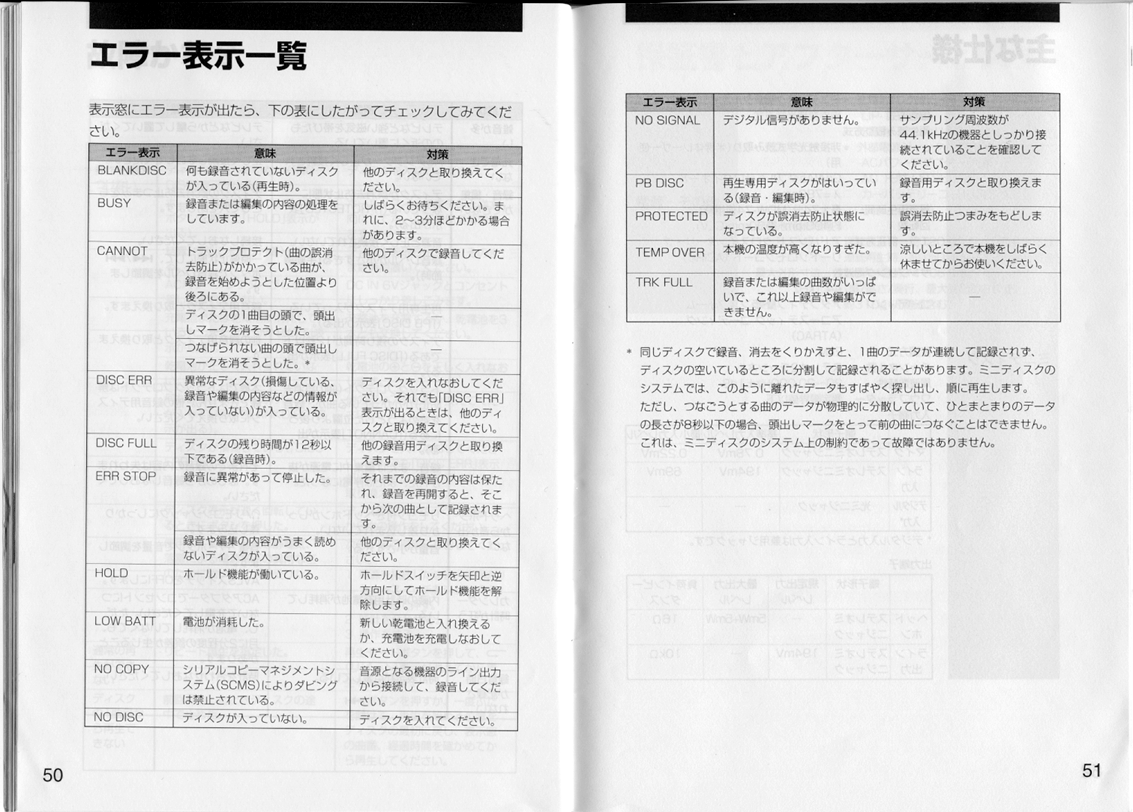 エラー表示一覧
表示窓にエラー表示が出たら、下の表にしたがってチェックしてみてくだ
さい。
エラー表示 意味 対策
BLANKDISC 何も録音されていないディスク 他のディスクと取り換えてく
が入っている(再生時)。 ださい。
BUSY 録音または編集の内容の処理を しばらくお待ちください。ま
しています。 れに、2〜3分ほどかかる場合
があります。
CANNOT トラックプロテクト(曲の誤消 他のディスクで録音してくだ
去防止)がかかっている曲が、 さい。
録音を始めようとした位置より
後ろにある。
ディスクの1曲目の頭で、頭出 —
しマークを消そうとした。
つなげられない曲の頭で頭出し —
マークを消そうとした。*
DISC ERR 異常なディスク(損傷している、 ディスクを入れなおしてくだ
録音や編集の内容などの情報が さい。それでも「DISC ERR」
入っていない)が入っている。 表示が出るときは、他のディ
スクと取り換えてください。
DISC FULL ディスクの残り時間が12秒以 他の録音用ディスクと取り換
下である(録音時)。 えます。
ERR STOP 録音に異常があって停止した。 それまでの録音の内容は保た
れ、録音を再開すると、そこ
から次の曲として記録されま
す。
録音や編集の内容がうまく読め 他のディスクと取り換えてく
ないディスクが入っている。 ださい。
HOLD ホールド機能が働いている。 ホールドスイッチを矢印と逆
方向にしてホールド機能を解
除します。
LOW BATT 電池が消耗した。 新しい乾電池と入れ換える
か、充電池を充電しなおして
ください。
NO COPY シリアルコピーマネジメントシ 音源となる機器のライン出力
ステム(SCMS)によりダビング から接続して、録音してくだ
は禁止されている。 さい。
NO DISC ディスクが入っていない。 ディスクを入れてください。
50
エラー表示 意味 対策
NO SIGNAL デジタル信号がありません。 サンプリング周波数が
44.1kHzの機器としっかり接
続されていることを確認して
ください。
PB DISC 再生専用ディスクがはいってい 録音用ディスクと取り換えま
る(録音・編集時)。 す。
PROTECTED ディスクが誤消去防止状態に 誤消去防止つまみをもどしま
なっている。 す。
TEMP OVER 本機の温度が高くなりすぎた。 涼しいところで本機をしばらく
休ませてからお使いください。
TRK FULL 録音または編集の曲数がいっぱ —
いで、これ以上録音や編集がで
きません。
* 同じディスクで録音、消去をくりかえすと、1曲のデータが連続して記録されず、
ディスクの空いているところに分割して記録されることがあります。ミニディスクの
システムでは、このように離れたデータもすばやく探し出し、順に再生します。
ただし、つなごうとする曲のデータが物理的に分散していて、ひとまとまりのデータ
の長さが8秒以下の場合、頭出しマークをとって前の曲につなぐことはできません。
これは、ミニディスクのシステム上の制約であって故障ではありません。
51